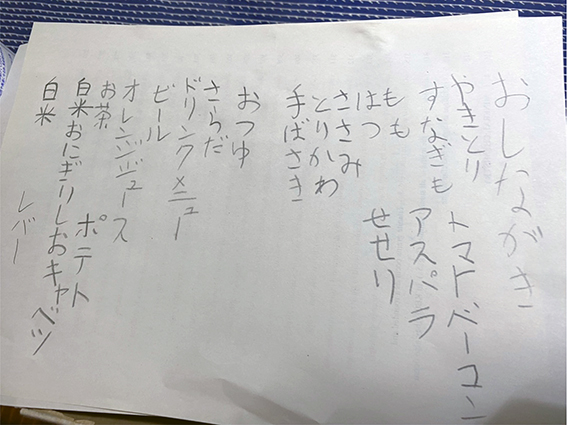 おしながき
やきとり トマトベーコン
すなぎも アスパラ
もも せせり
はつ
ささみ
とりかわ
手ばさき
おつゆ
さらだ
ドリンクメニュー
ビール
オレンジジュース
お茶
ポテト
白米おにぎりしおキャベツ
白米
レバー